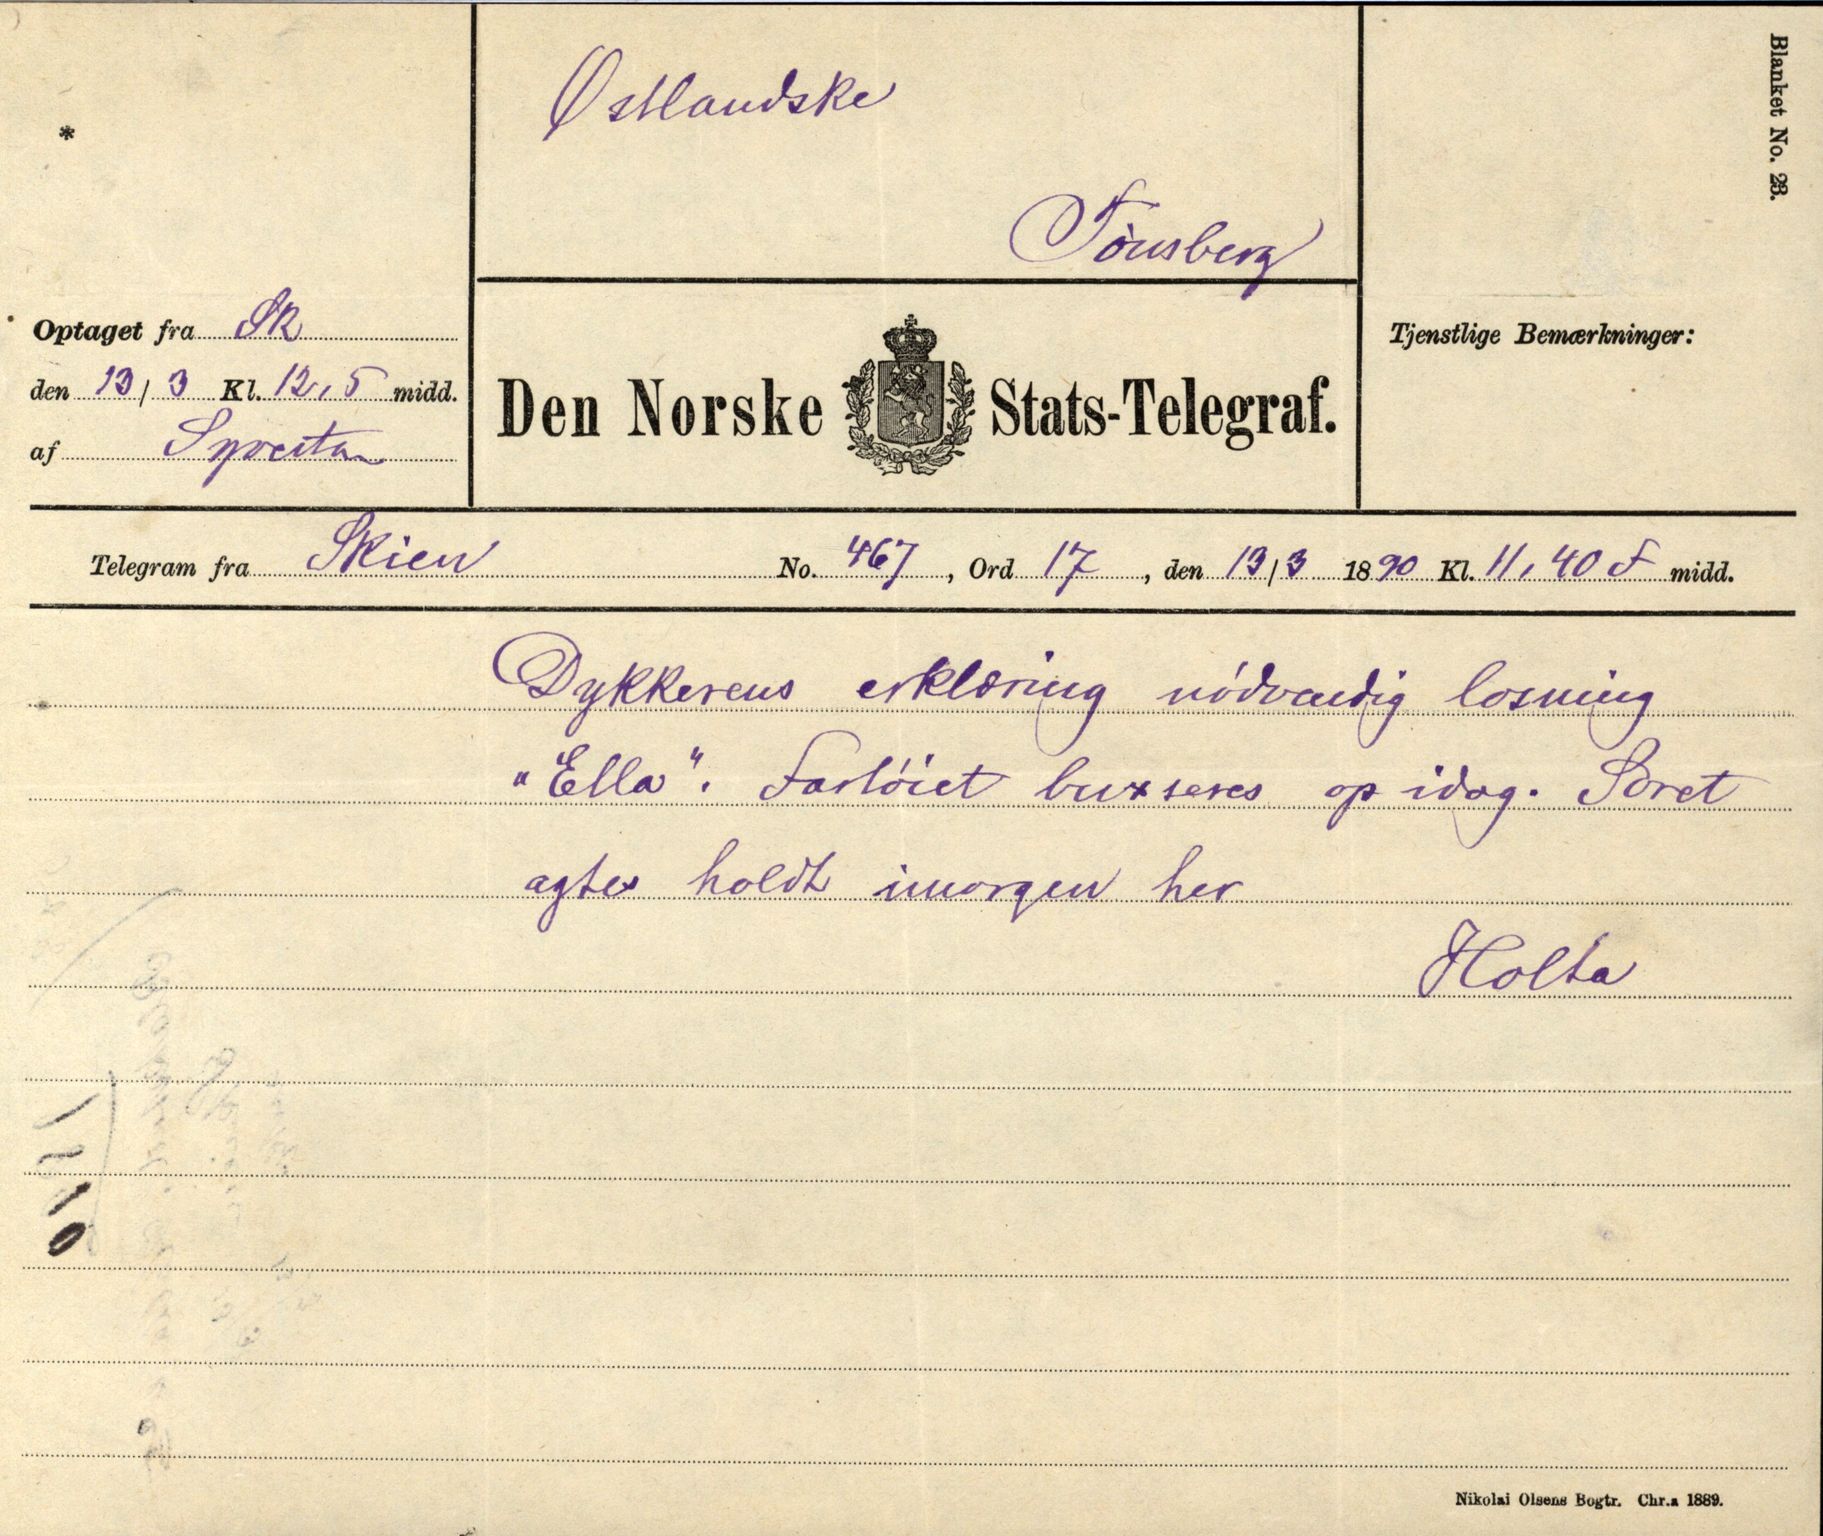 Blanket No. 23.
*
Østlandske
Tönsberg
Optaget fra Sk
den 13/3 Kl. 12,5 midd.
af
Den Norske Stats-Telegraf.
Tjenstlige Bemærkninger:
Telegram fra Skien No. 467, Ord 17, den 13/3 1890 Kl. 11,40 F midd.
Dykkerens erklæring nódvendig losning
"Ella". Fartóiet buxseres op idag. Söret
agtes holdt imorgen her
Holta
Nikolai Olsens Bogtr. Chr.a 1889.